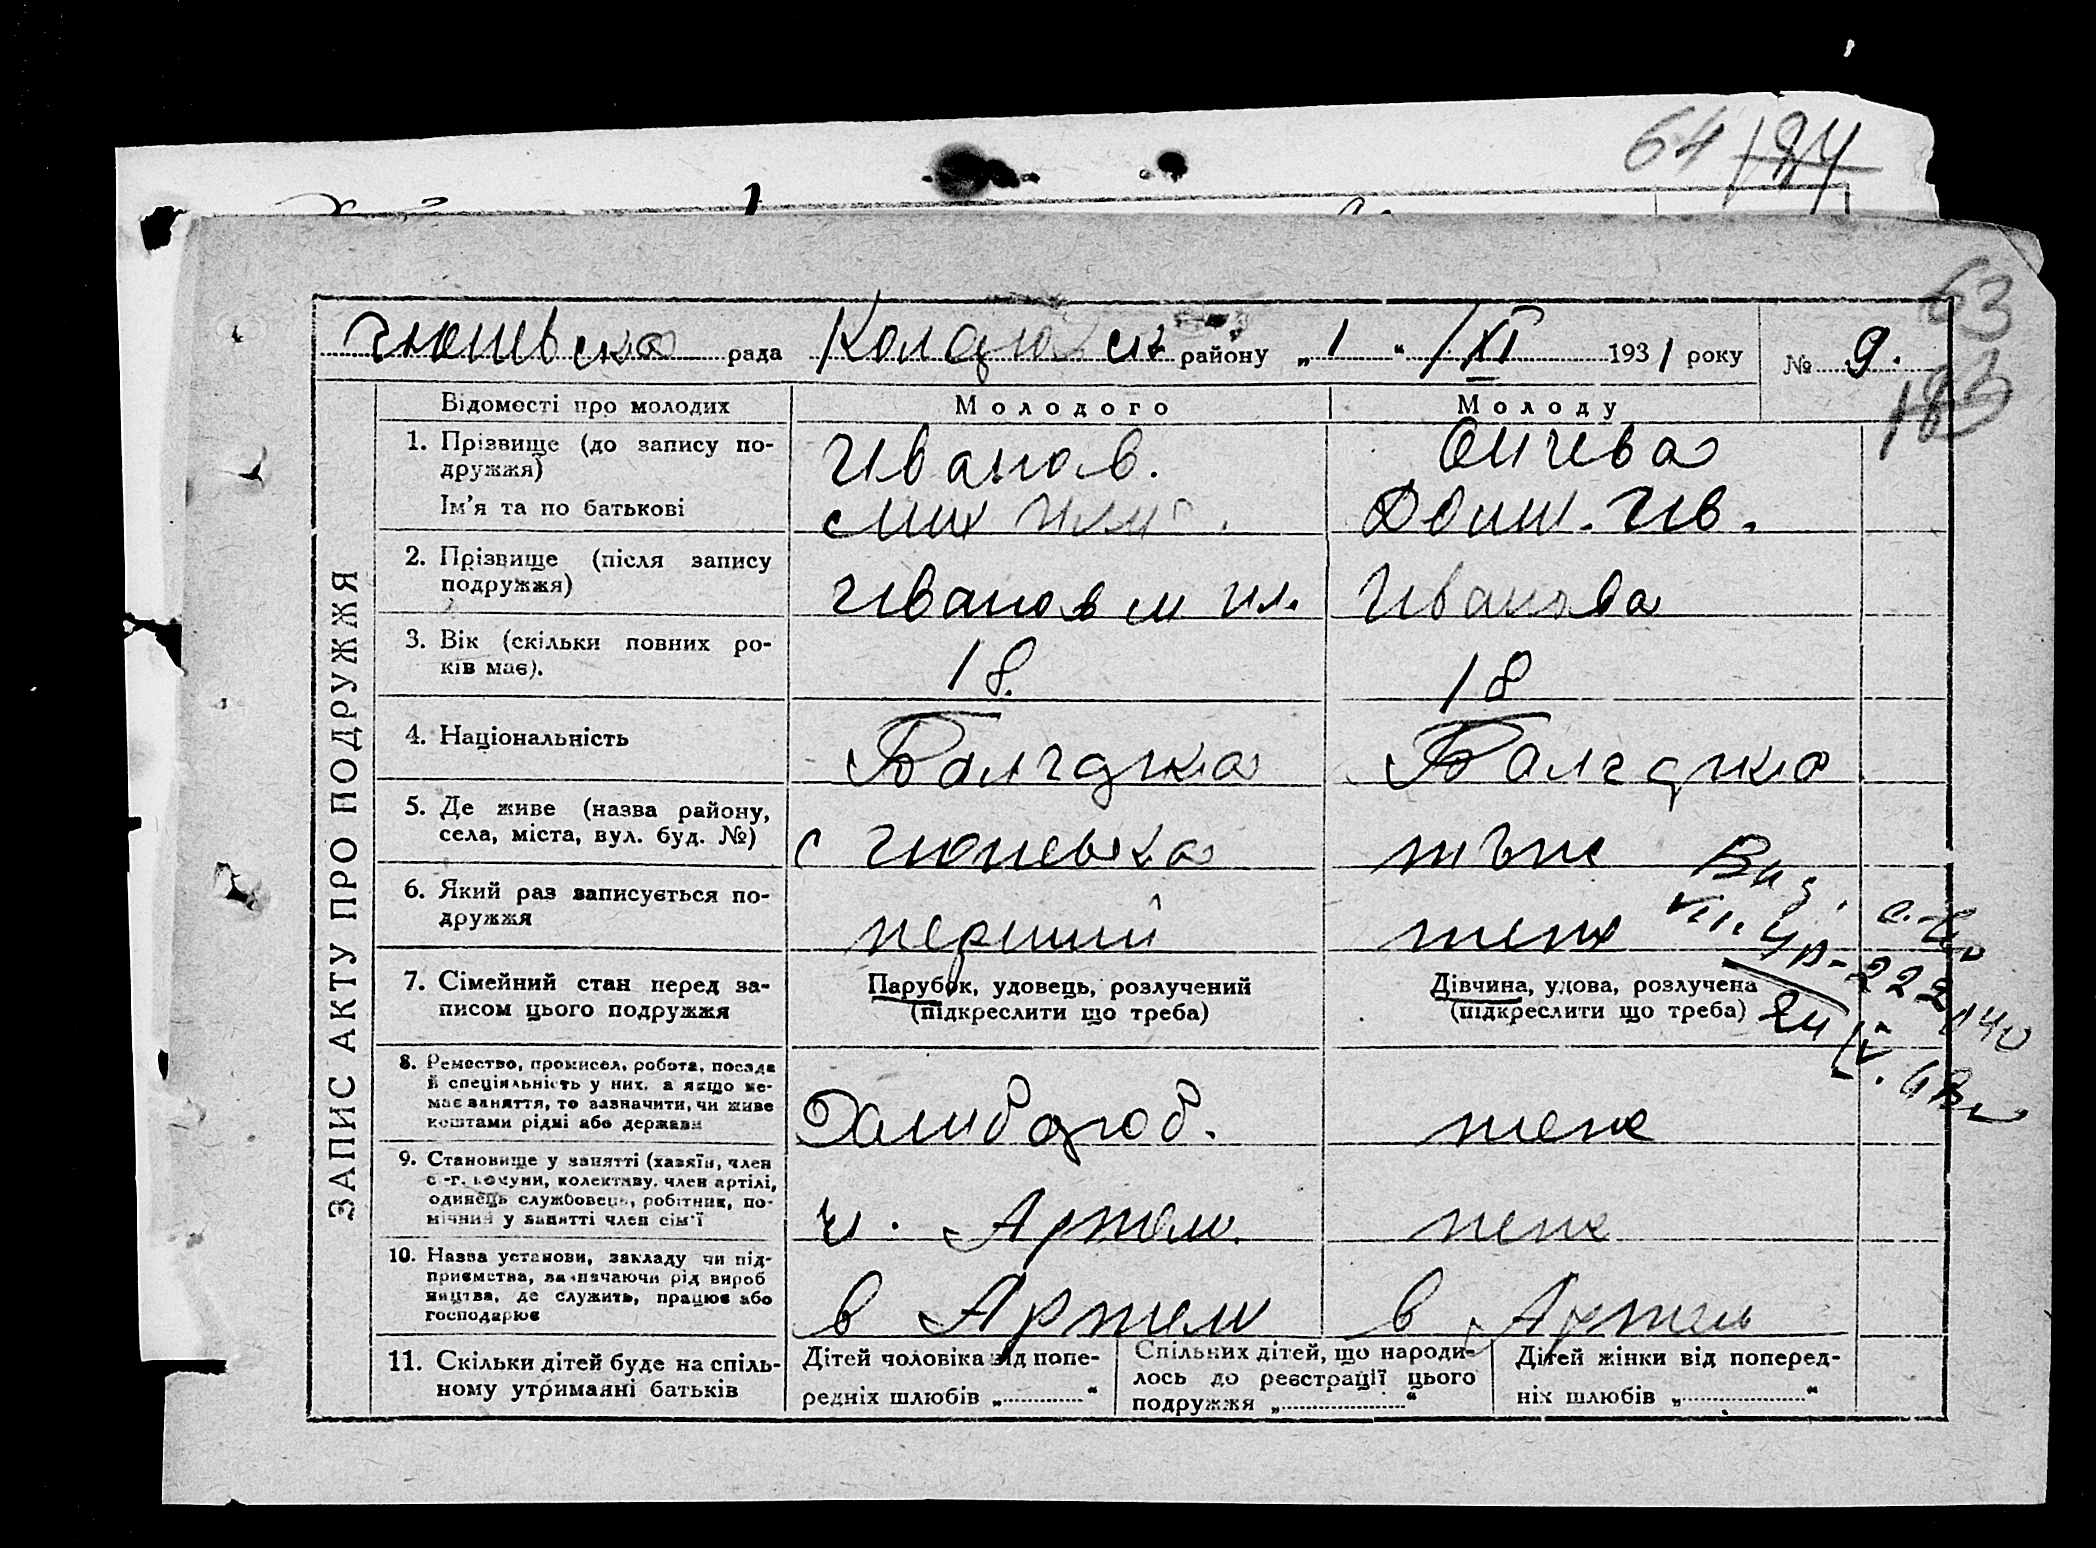 64 184
63
183
Гюневска рада Коларовск району „1“ /XI 1931 року № 9.
ЗАПИС АКТУ ПРО ПОДРУЖЖЯ
Відомості про молодих Молодого Молоду
1. Прізвище (до запису по-
дружжя) Иванов.
Ім'я та по батькові Мих Ил Ив.
2. Прізвище (після запису
подружжя) Иванов м ил. Иванова
3. Вік (скільки повних ро-
ків має). 18. 18
4. Національність Балгарка Балгарка
5. Де живе (назва району,
села, міста, вул. буд. №) с Гюневка
6. Який раз записується по-
дружжя перший
7. Сімейний стан перед за-
писом цього подружжя
Парубок, удовець, розлучений
(підкреслити що треба)
Дівчина, удова, розлучена
(підкреслити що треба)
8. Ремество, промисел, робота, посада
й спеціяльність у них, а якщо не-
має заняття, то зазначити, чи живе
коштами рідні або держави
Хлибороб.
9. Становище у занятті (хазяїн, член
с.-г. комуни, колективу, член артілі,
одинець службовець, робітник, по-
мічний у занятті член сім'ї
ч. Артели.
10. Назва установи, закладу чи під-
приємства, зазначаючи рід вироб
ництва, де служить, працює або
господарює
в Артели в Артель
11. Скільки дітей буде на спіль-
ному утриманні батьків
Дітей чоловіка від попе-
редніх шлюбів „ “
Спільних дітей, що народи-
лось до реєстрації цього
подружжя „ “
Дітей жінки від поперед-
ніх шлюбів „ “